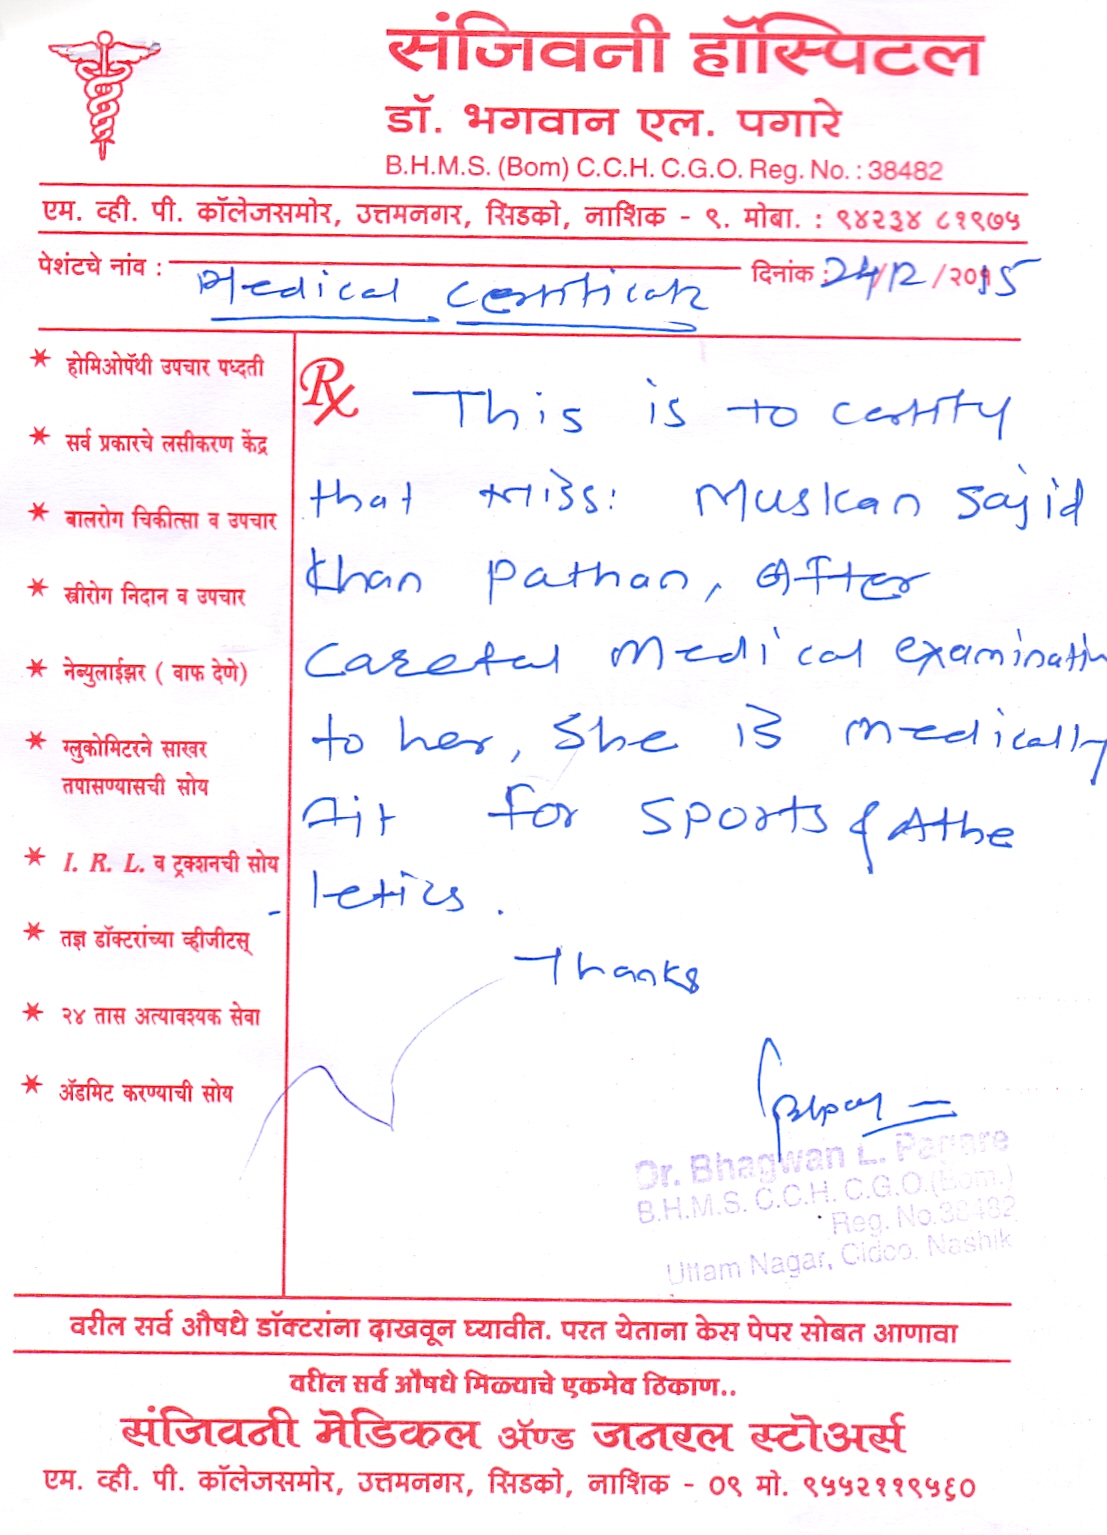 संजिवनी हॉस्पिटल
डॉ. भगवान एल. पगारे
B.H.M.S. (Bom) C.C.H. C.G.O. Reg. No. : 38482
एम. व्ही. पी. कॉलेजसमोर, उत्तमनगर, सिडको, नाशिक - ९. मोबा. : ९४२३४ ८१९७५
पेशंटचे नांव : दिनांक : 24/12/२०15
Medical Certificate
* होमिओपॅथी उपचार पध्दती
* सर्व प्रकारचे लसीकरण केंद्र
* बालरोग चिकीत्सा व उपचार
* स्त्रीरोग निदान व उपचार
* नेब्युलाईझर ( वाफ देणे)
* ग्लुकोमिटरने साखर
तपासण्यासची सोय
* I. R. L. व ट्रक्शनची सोय
* तज्ञ डॉक्टरांच्या व्हीजीटस्
* २४ तास अत्यावश्यक सेवा
* ॲडमिट करण्याची सोय
Rx This is to certify
that Miss: Muskan Sajid
Khan Pathan, After
Careful Medical examination
to her, She is medically
Fit for Sports & Athe
letics.
Thanks
Dr. Bhagwan L. Pagare
B.H.M.S. C.C.H. C.G.O.(Bom.)
Reg. No.38482
Uttam Nagar, Cidco. Nashik
वरील सर्व औषधे डॉक्टरांना दाखवून घ्यावीत. परत येताना केस पेपर सोबत आणावा
वरील सर्व औषधे मिळ्याचे एकमेव ठिकाण..
संजिवनी मेडिकल ॲण्ड जनरल स्टोअर्स
एम. व्ही. पी. कॉलेजसमोर, उत्तमनगर, सिडको, नाशिक - ०९ मो. ९५५२११९५६०